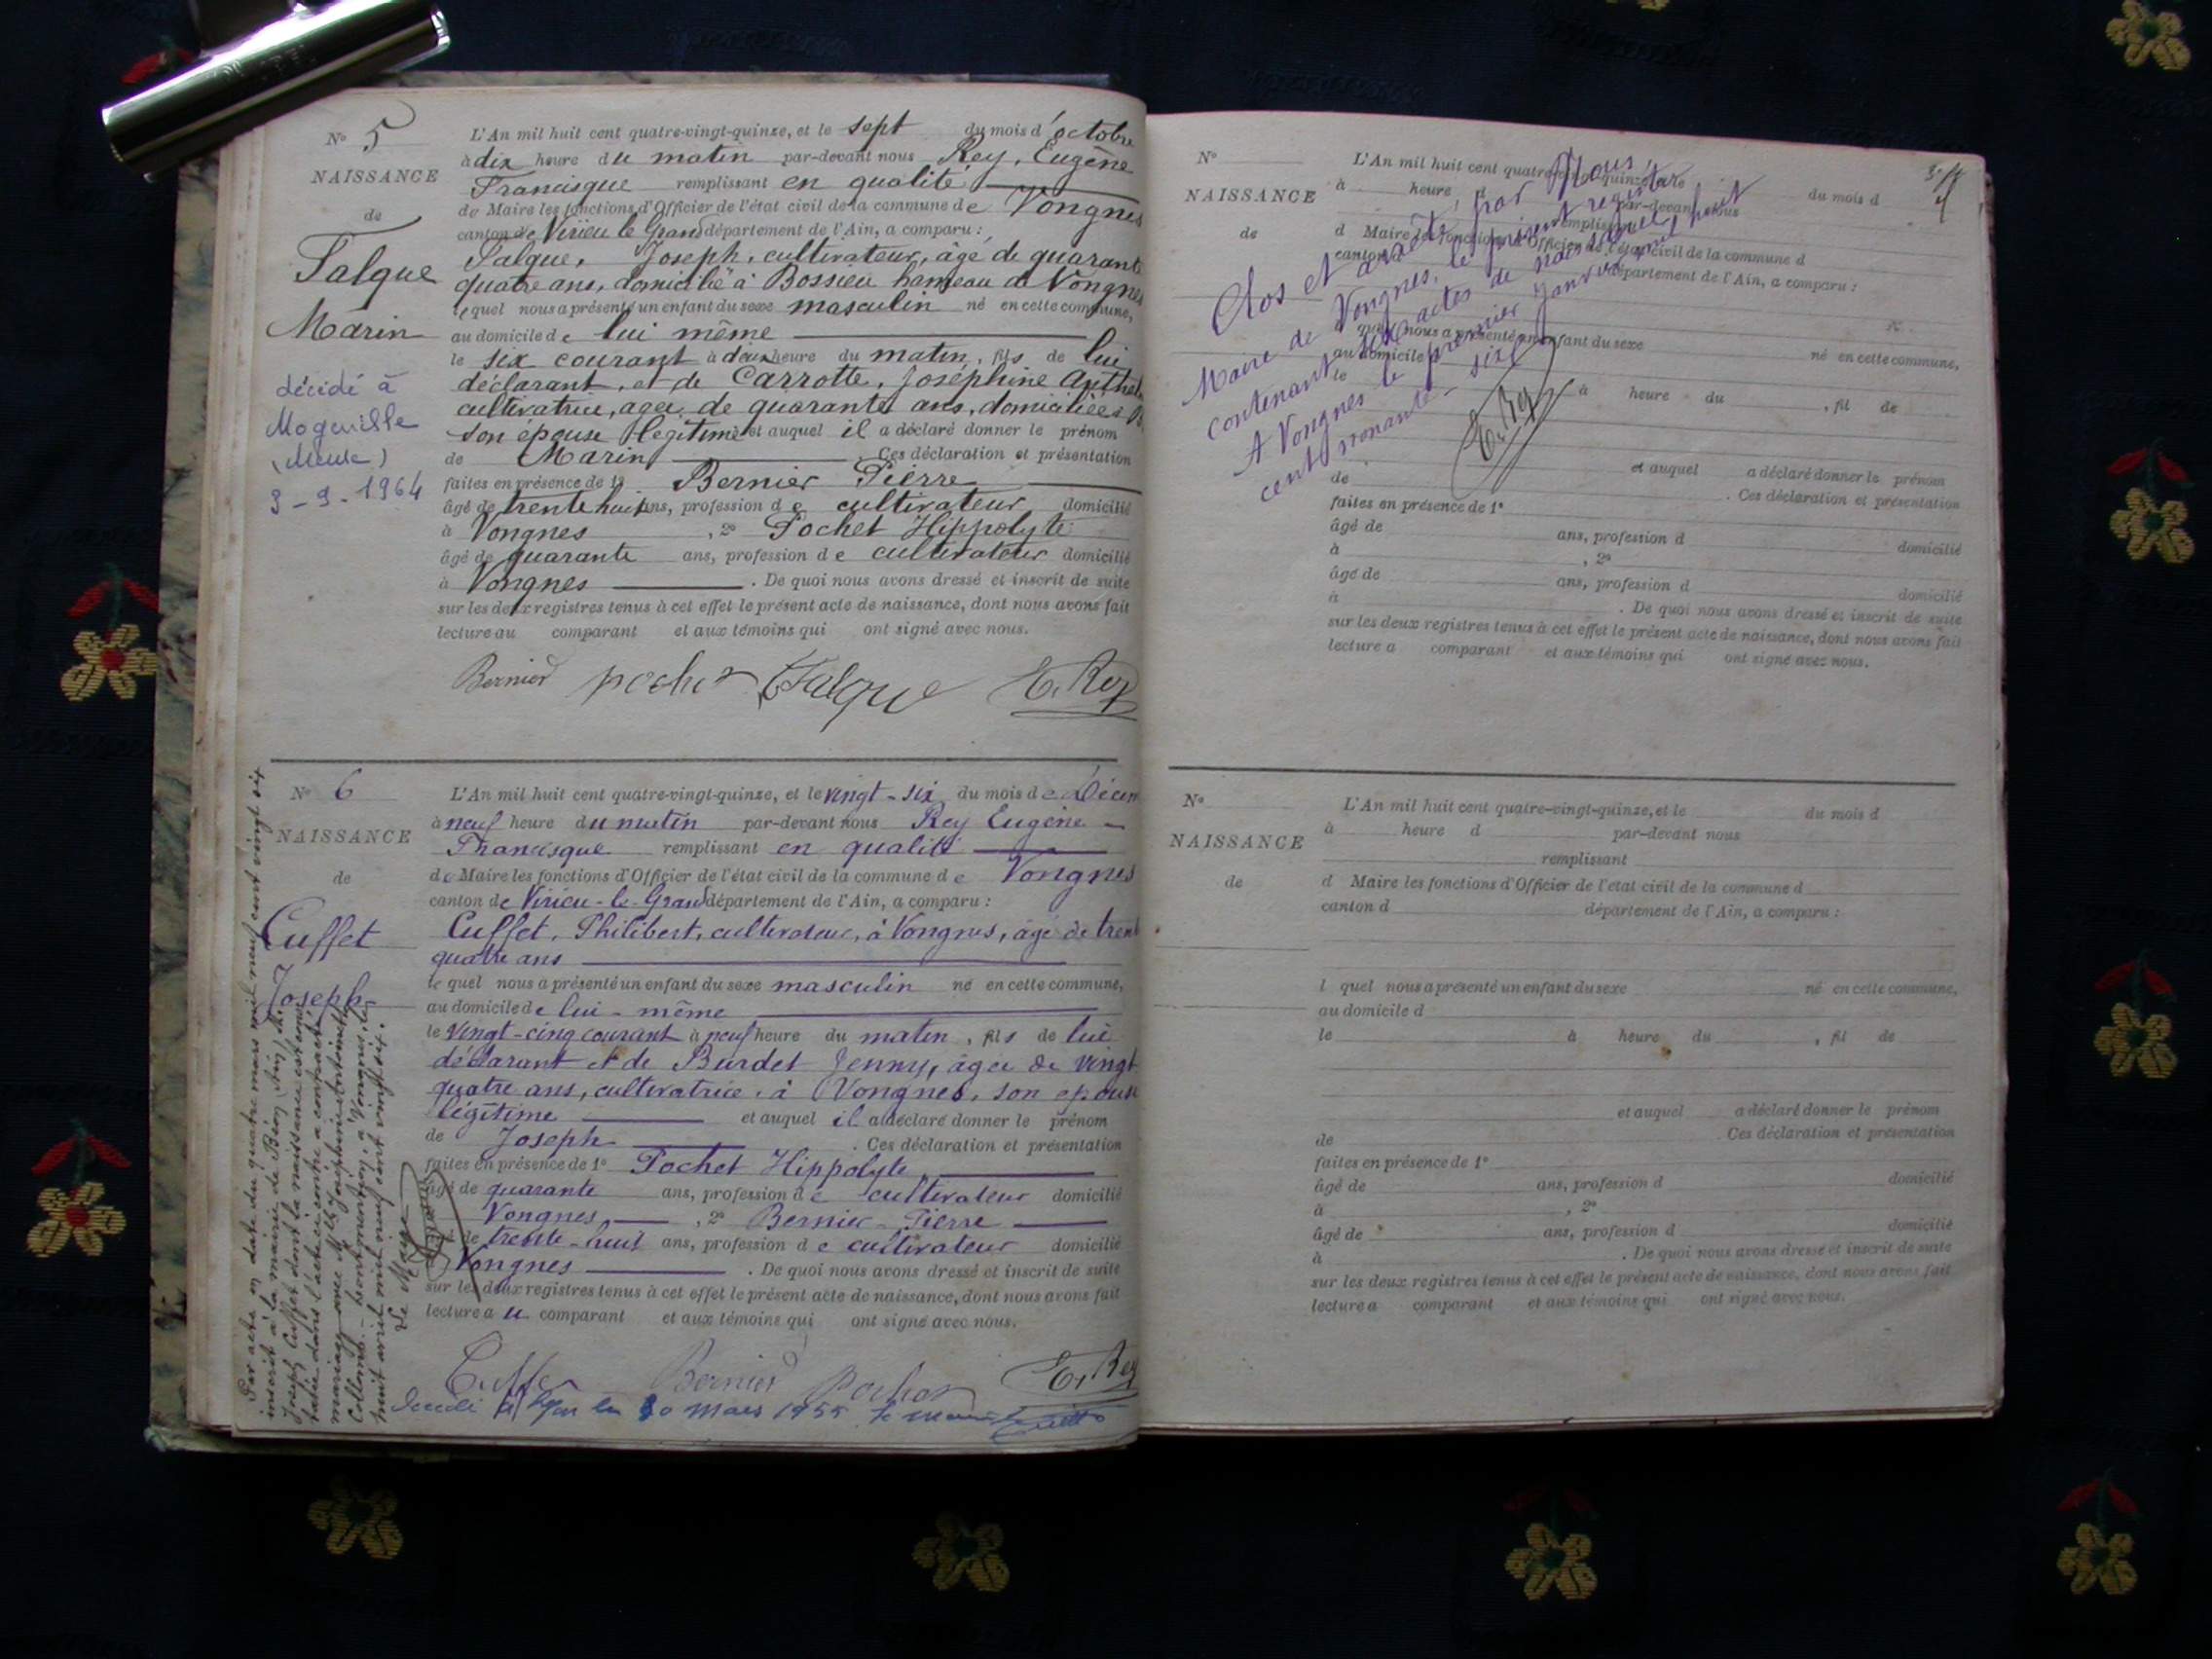 N° 5
NAISSANCE
de
Falque
Marin
décidé à
Mogeville
(Meuse)
3-9-1964
L'An mil huit cent quatre-vingt-quinze, et le sept du mois d'octobre
à dix heure du matin par-devant nous Rey, Eugène
Francisque remplissant en qualité
de Maire les fonctions d'Officier de l'état civil de la commune de Vongnes
canton de Virieu le Grand département de l'Ain, a comparu :
Falque, Joseph, cultivateur, âgé de quarante
quatre ans, domicilié à Bossieu hameau de Vongnes
lequel nous a présenté un enfant du sexe masculin né en cette commune,
au domicile de lui même
le six courant à deux heure du matin, fils de lui
déclarant, et de Carrotte, Joséphine
cultivatrice, agée de quarante ans, domiciliée à
son épouse légitime et auquel il a déclaré donner le prénom
de Marin. Ces déclaration et présentation
faites en présence de 1° Bernier Pierre
âgé de trente huit ans, profession de cultivateur domicilié
à Vongnes, 2° Pochet Hippolyte
âgé de quarante ans, profession de cultivateur domicilié
à Vongnes. De quoi nous avons dressé et inscrit de suite
sur les deux registres tenus à cet effet le présent acte de naissance, dont nous avons fait
lecture au comparant et aux témoins qui ont signé avec nous.
Bernier pochet Falque E. Rey
N° 6
NAISSANCE
de
Cuffet
Joseph
L'An mil huit cent quatre-vingt-quinze, et le vingt-six du mois de Décem
à neuf heure du matin par-devant nous Rey Eugène
Francisque remplissant en qualité
de Maire les fonctions d'Officier de l'état civil de la commune de Vongnes
canton de Virieu-le-Grand département de l'Ain, a comparu :
Cuffet, Philibert, cultivateur, à Vongnes, âgé de trent
quatre ans
lequel nous a présenté un enfant du sexe masculin né en cette commune,
au domicile de lui-même
le vingt-cinq courant à neuf heure du matin, fils de lui
déclarant et de Burdet Jenny, âgée de vingt
quatre ans, cultivatrice, à Vongnes, son épouse
légitime et auquel il a déclaré donner le prénom
de Joseph. Ces déclaration et présentation
faites en présence de 1° Pochet Hippolyte,
âgé de quarante ans, profession de cultivateur domicilié
Vongnes, 2° Bernier Pierre
de trente-huit ans, profession de cultivateur domicilié
Vongnes. De quoi nous avons dressé et inscrit de suite
sur les deux registres tenus à cet effet le présent acte de naissance, dont nous avons fait
lecture au comparant et aux témoins qui ont signé avec nous.
Cuffet Bernier Pochet E. Rey
le 30 Mars 1955 le
Par acte en date du quatre mars mil neuf cent vingt six
inscrit à la mairie de Béon (Ain), Mr
Joseph Cuffet dont la naissance est cons
tatée dans l'acte ci-contre a contracté
mariage avec Mlle Joséphine Antoinette
Collomb. - mention, à Vongnes, le
huit avril mil neuf cent vingt six.
Le Maire
N°
NAISSANCE
de
L'An mil huit cent quatre-vingt-quinze, et le du mois d
à heure d par-devant nous
remplissant
d Maire les fonctions d'Officier de l'état civil de la commune d
canton d département de l'Ain, a comparu :
l quel nous a présenté un enfant du sexe né en cette commune,
au domicile d
le à heure du, fil de
et auquel a déclaré donner le prénom
de. Ces déclaration et présentation
faites en présence de 1°
âgé de ans, profession d domicilié
à, 2°
âgé de ans, profession d domicilié
à. De quoi nous avons dressé et inscrit de suite
sur les deux registres tenus à cet effet le présent acte de naissance, dont nous avons fait
lecture a comparant et aux témoins qui ont signé avec nous.
Clos et arrêté par Nous,
Maire de Vongnes, le présent registre
contenant six actes de naissance,
A Vongnes le premier Janvier mil huit
cent nonante-six
E. Rey
N°
NAISSANCE
de
L'An mil huit cent quatre-vingt-quinze, et le du mois d
à heure d par-devant nous
remplissant
d Maire les fonctions d'Officier de l'état civil de la commune d
canton d département de l'Ain, a comparu :
l quel nous a présenté un enfant du sexe né en cette commune,
au domicile d
le à heure du, fil de
et auquel a déclaré donner le prénom
de. Ces déclaration et présentation
faites en présence de 1°
âgé de ans, profession d domicilié
à, 2°
âgé de ans, profession d domicilié
à. De quoi nous avons dressé et inscrit de suite
sur les deux registres tenus à cet effet le présent acte de naissance, dont nous avons fait
lecture a comparant et aux témoins qui ont signé avec nous.